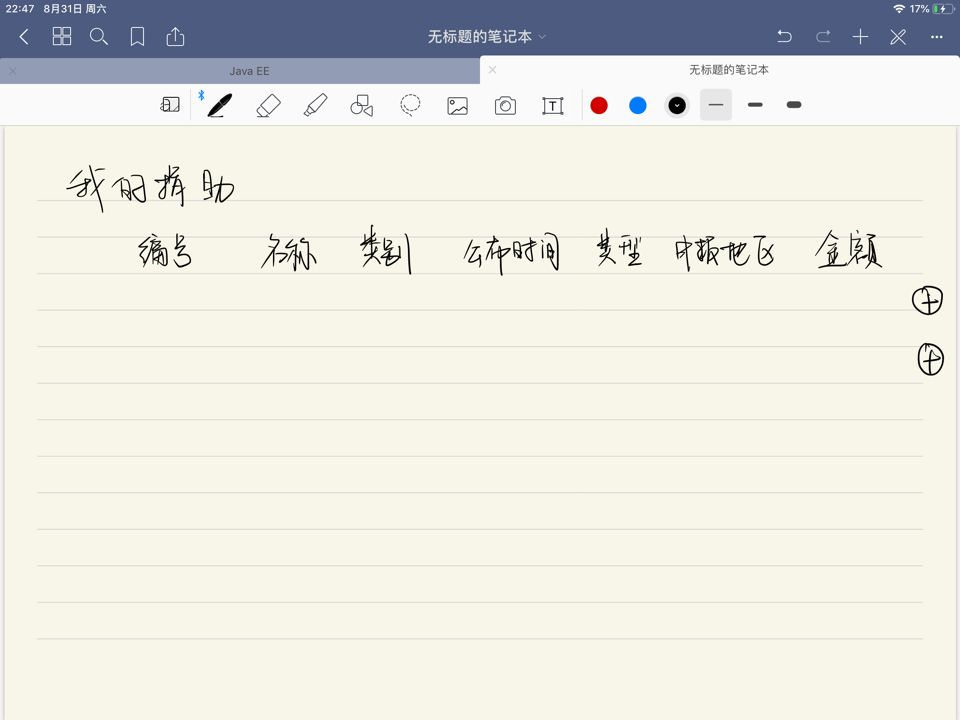 22:47 8月31日 周六 17%
无标题的笔记本
Java EE 无标题的笔记本
T
我的捐助
编号 名称 类别 公布时间 类型 申报地区 金额